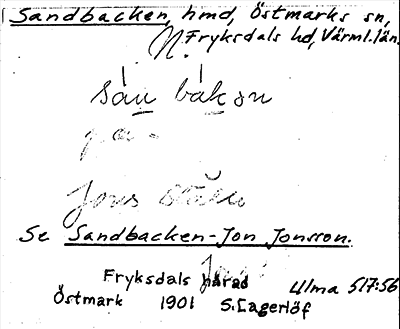 Sandbacken, hmd, Östmarks sn,
N. Fryksdals hd, Värml. län.
sán bàkən
på -
Jons
Se Sandbacken-Jon Jonsson.
Fryksdals härad
Östmark 1901 S. Lagerlöf
Ulma 517:56